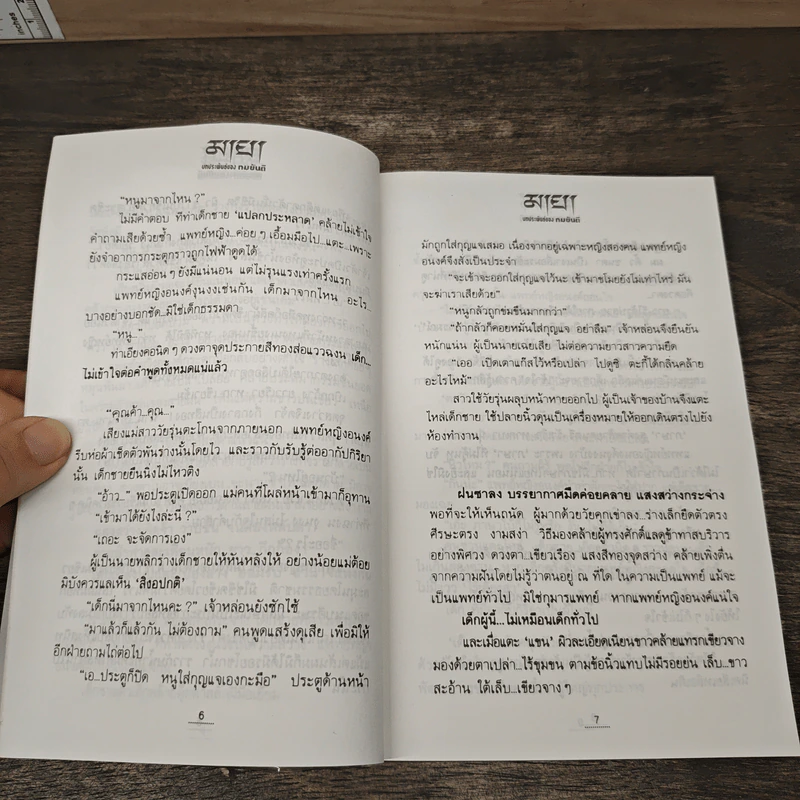 inches
1
มายา
บทประพันธ์ของ ทมยันตี
“หนูมาจากไหน ?”
ไม่มีคำตอบ ทีท่าเด็กชาย ‘แปลกประหลาด’ คล้ายไม่เข้าใจ
คำถามเสียด้วยซ้ำ แพทย์หญิง...ค่อย ๆ เอื้อมมือไป...แตะ...เพราะ
ยังจำอาการกระตุกราวถูกไฟฟ้าดูดได้
กระแสอ่อน ๆ ยังมีแน่นอน แต่ไม่รุนแรงเท่าครั้งแรก
แพทย์หญิงอนงค์งุนงงเช่นกัน เด็กมาจากไหน อะไร...
บางอย่างบอกชัด...มิใช่เด็กธรรมดา
“หนู...”
ท่าเอียงคอนิด ๆ ดวงตาจุดประกายสีทองส่อแววฉงน เด็ก...
ไม่เข้าใจต่อคำพูดทั้งหมดแน่แล้ว
“คุณค้า...คุณ...”
เสียงแม่สาววัยรุ่นตะโกนจากภายนอก แพทย์หญิงอนงค์
รีบห่อผ้าเช็ดตัวพันร่างนั้นโดยไว และราวกับรับรู้ต่ออากัปกิริยา
นั้น เด็กชายยืนนิ่งไม่ไหวติง
“อ้าว...” พอประตูเปิดออก แม่คนที่โผล่หน้าเข้ามาก็อุทาน
“เข้ามาได้ยังไงล่ะนี่ ?”
“เถอะ จะจัดการเอง”
ผู้เป็นนายพลิกร่างเด็กชายให้หันหลังให้ อย่างน้อยแม่ต้อย
มิบังควรแลเห็น ‘สิ่งอปกติ’
“เด็กนี่มาจากไหนคะ ?” เจ้าหล่อนยังซักไซ้
“มาแล้วก็แล้วกัน ไม่ต้องถาม” คนพูดแสร้งดุเสีย เพื่อมิให้
อีกฝ่ายถามไถ่ต่อไป
“เอ...ประตูก็ปิด หนูใส่กุญแจเองกะมือ” ประตูด้านหน้า
6
มายา
บทประพันธ์ของ ทมยันตี
มักถูกใส่กุญแจเสมอ เนื่องจากอยู่เฉพาะหญิงสองคน แพทย์หญิง
อนงค์จึงสั่งเป็นประจำ
“จะเข้าจะออกใส่กุญแจไว้นะ เข้ามาขโมยยังไม่เท่าไหร่ มัน
จะฆ่าเราเสียด้วย”
“หนูกลัวถูกข่มขืนมากกว่า”
“ถ้ากลัวก็คอยหมั่นใส่กุญแจ อย่าลืม” เจ้าหล่อนจึงยืนยัน
หนักแน่น ผู้เป็นนายเฉยเสีย ไม่ต่อความยาวสาวความยืด
“เออ เปิดเตาแก๊สไว้หรือเปล่า ไปดูซิ ตะกี้ได้กลิ่นคล้าย
อะไรไหม้”
สาวใช้วัยรุ่นผลุบหน้าหายออกไป ผู้เป็นเจ้าของบ้านจึงแตะ
ไหล่เด็กชาย ใช้ปลายนิ้วดุนเป็นเครื่องหมายให้ออกเดินตรงไปยัง
ห้องทำงาน
ฝนซาลง บรรยากาศมืดค่อยคลาย แสงสว่างกระจ่าง
พอที่จะให้เห็นถนัด ผู้มากด้วยวัยคุกเข่าลง...ร่างเล็กยืดตัวตรง
ศีรษะตรง งามสง่า วิธีมองคล้ายผู้ทรงศักดิ์แลดูข้าทาสบริวาร
อย่างพิศวง ดวงตา...เขียวเรือง แสงสีทองจุดสว่าง คล้ายเพิ่งตื่น
จากความฝันโดยไม่รู้ว่าตนอยู่ ณ ที่ใด ในความเป็นแพทย์ แม้จะ
เป็นแพทย์ทั่วไป มิใช่กุมารแพทย์ หากแพทย์หญิงอนงค์แน่ใจ
เด็กผู้นี้...ไม่เหมือนเด็กทั่วไป
และเมื่อแตะ ‘แขน’ ผิวละเอียดเนียนขาวคล้ายแทรกเขียวจาง
มองด้วยตาเปล่า...ไร้ขุมขน ตามข้อนิ้วแทบไม่มีรอยย่น เล็บ...ขาว
สะอ้าน ใต้เล็บ...เขียวจาง ๆ
7